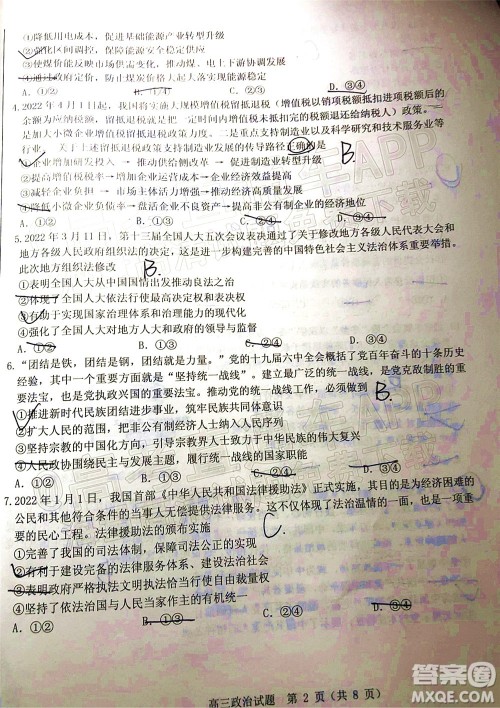 ①降低用电成本，促进基础能源产业转型升级
②强化区间调控，保障能源安全稳定供应
③使煤价能反映供需变化，推动煤、电上下游协调发展
④通过打压煤炭价格大起大落落实能源稳定
A. ①② B. ①④ C. ②③ D. ③④
4. 2022 年 4 月 1 日起，我国将实施大规模增值税留抵退税（增值税以销项税额抵扣进项税额后的
余额为应纳税额，留抵退税就是把一定时期内未抵扣完的税额退还给纳税人）政策。一
是加大小微企业增值税留抵退税政策力度，二是重点支持制造业以及科学研究和技术服务业等
行业。关于上述留抵退税政策支持制造业发展的传导路径正确的是
①增加企业研发投入→推动供给侧改革→促进制造业转型升级
②提高增值税税率→增加企业运营成本→企业经济效益提高
③减轻企业负担→增强企业活力→企业生产经营向好
④降低小微企业负债率→盘活企业不良资产→提高非公有制企业的经济地位
A. ①② B. ①③ C. ②④ D. ③④
B.
5. 2022 年 3 月 11 日，第十三届全国人大五次会议表决通过了关于修改地方各级人民代表大会和
地方各级人民政府组织法的决定，这是完善发展中国特色社会主义法治体系重要举措。
此次地方组织法修改
B.
①表明全国人大从中国国情出发推动良法之治
②体现了全国人大依法行使最高决定权和表决权
③有助于实现国家机构组织、运行和活动的规范化
④强化了全国人大对地方人大和政府的领导与监督
A. ①② B. ①③ C. ②④ D. ③④
6. “团结是铁，团结是钢，团结就是力量。”党的十九届六中全会概括了党百年奋斗的十条历史
经验，其中一条就是“坚持统一战线”。建立最广泛的统一战线，是党克敌制胜的重要
法宝，也是党执政兴国的重要法宝。推动党的统一战线工作，必须做到
B.
①推进新时代民族团结进步事业，筑牢民族共同体意识
②扩大人民民主的范围，把非公有制经济人士纳入人民序列
③坚持宗教的中国化方向，引导宗教界助力中华民族的伟大复兴
④人民政协围绕团结与民主主题，履行统一战线的国家职能
A. ①② B. ①③ C. ②④ D. ③④
7. 2022 年 1 月 1 日，我国首部《中华人民共和国法律援助法》正式实施，其目的是为经济困难的
公民和其他符合条件的当事人无偿提供法律服务，让法律援助成为一项重要的
民心工程。法律援助法的颁布实施
C
①完善了我国的司法体制，保障司法公正的实现
②有利于建设完备的法律服务体系、法治建设
③表明政府严格执法文明执法恰当使用自由裁量权
④坚持了依法治国与人民当家作主的有机统一
A. ①② B. ①③ C. ②④ D. ③④
高三政治试题 第 2 页（共 8 页）
答案圈
MXQE.COM